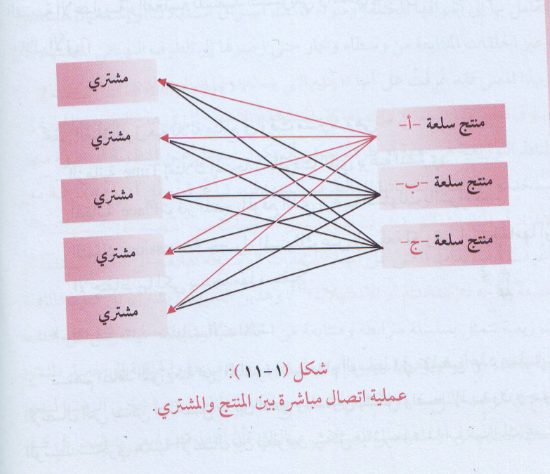 مشتري
منتج سلعة -أ-
مشتري
منتج سلعة -ب-
مشتري
منتج سلعة -ج-
مشتري
مشتري
شكل (١-١١):
عملية اتصال مباشرة بين المنتج والمشتري.